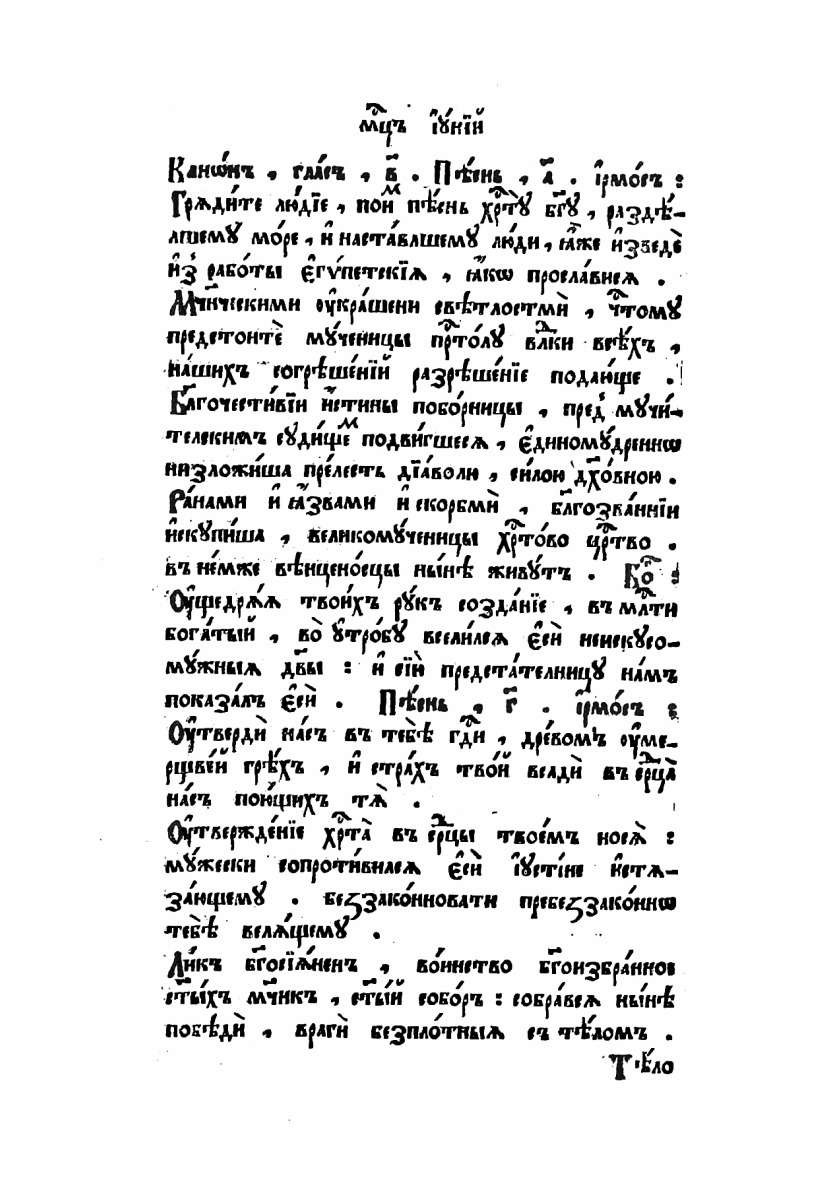 мⷭ҇цъ і҆ꙋ́нїй
Канѡ́нъ , гла́съ , в҃ . Пѣ́снь , а҃ . і҆рмо́съ :
Грѧди́те лю́дїе , пои́ⷨ пѣ́снь хрⷭ҇тꙋ̀ бг҃ꙋ , раздѣ́-
лшемꙋ мо́ре , и҆ наста́вльшемꙋ лю́ди , ꙗ҆́же и҆зведѐ
и҆з̾ рабо́ты є҆гѵ́петскїѧ , ꙗ҆́кѡ просла́висѧ .
Мч҃ническими ᲂу҆кра́шени свѣ́тлостмѝ , чⷭ҇томꙋ
предстоитѐ мꙋ́ченицы прⷭ҇то́лꙋ влⷣки всѣ́хъ ,
на́шихъ согрѣше́нїй разрѣше́нїе подаю́ще .
Бл҃гочести́вїи и҆́стины побо́рницы , пред̾ мꙋчи́-
телскимъ сꙋди́щеⷨ подви́гшесѧ , є҆диномꙋ́дреннѡ
низложи́ша пре́лесть дїа́волю , си́лою дх҃о́вною .
Ра́нами и҆ ꙗ҆́звами и҆ скорбмѝ , бл҃гозва́ннїи
и҆скꙋпи́ша , великомꙋ́ченицы хрⷭ҇то́во црⷭ҇тво .
въ не́мже вѣнцено́сцы ны́нѣ живꙋ́тъ . Бо҃ :
Оу҆ще́дрѧѧ твои́хъ рꙋ́къ созда́нїе , въ млⷭ҇ти
бога́тый , во̀ ᲂу҆тро́бꙋ всели́лсѧ є҆сѝ неискꙋсо-
мꙋ́жныѧ дв҃ы : и҆ сїѝ предста́телницꙋ на́мъ
показа́лъ є҆сѝ . Пѣ́снь , г҃ . і҆рмо́съ :
Оу҆твердѝ на́съ въ тебѣ̀ гдⷭ҇и , дре́вомъ ᲂу҆ме-
рщве́й грѣ́хъ , и҆ стра́хъ тво́й всадѝ въ срⷣца̀
на́съ пою́щихъ тѧ̀ .
Оу҆твержде́нїе хрⷭ҇та̀ въ срⷣцы твое́мъ носѧ̀ :
мꙋ́жески сопроти́вилсѧ є҆сѝ і҆ꙋсті́не и҆стѧ-
за́ющемꙋ . беззако́нновати пребеззако́ннѡ
тебѣ̀ велѧ́щемꙋ .
Ли́къ бг҃осїѧ́ненъ , во́инство бг҃оизбра́нное
ст҃ы́хъ мч҃нкъ , ст҃ы́й собо́ръ : собра́всѧ ны́нѣ
побѣдѝ , врагѝ безпло́тныѧ съ тѣ́ломъ .
Тѣ́ло